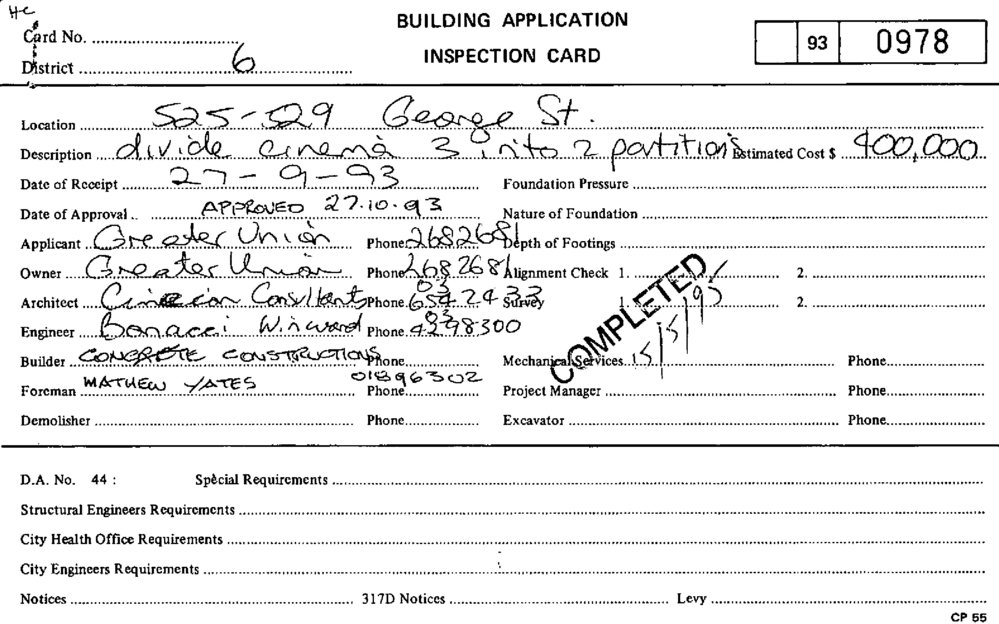 HC
BUILDING APPLICATION
INSPECTION CARD
Card No.
93 0978
District 6
Location 525-529 George St.
Description divide cinema 3 into 2 partitions Estimated Cost $ 400,000
Date of Receipt 27-9-93 Foundation Pressure
Date of Approval APPROVED 27.10.93 Nature of Foundation
Applicant Greater Union Phone 2682681 Depth of Footings
Owner Greater Union Phone 2682681 Alignment Check 1. 2.
Architect Consultants Phone 03 654 2433 Survey 1. 2.
Engineer Bonacci Winward Phone 4398300
COMPLETED
15/5/95
Builder CONCRETE CONSTRUCTIONS Phone Mechanical Services Phone
Foreman MATHEW YATES Phone 01896302 Project Manager Phone
Demolisher Phone Excavator Phone
D.A. No. 44 : Special Requirements
Structural Engineers Requirements
City Health Office Requirements
City Engineers Requirements
Notices 317D Notices Levy
CP 55